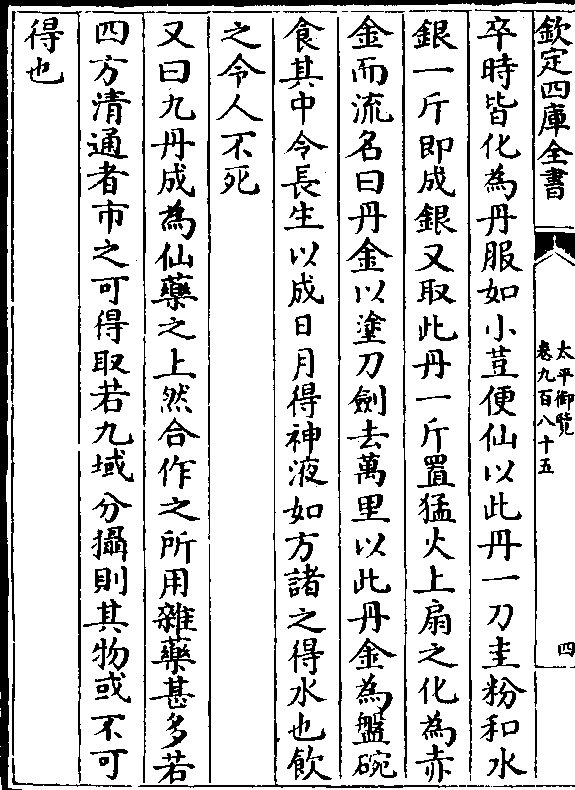 欽定四庫全書
太平御覽
卷九百八十五
四
卒時皆化為丹服如小荳便仙以此丹一刀圭粉和水
銀一斤即成銀又取此丹一斤置猛火上扇之化為赤
金而流名曰丹金以塗刀劍去萬里以此丹金為盤碗
食其中令長生以成日月得神液如方諸之得水也飲
之令人不死
又曰九丹成為仙藥之上然合作之所用雜藥甚多若
四方清通者市之可得取若九域分攝則其物或不可
得也